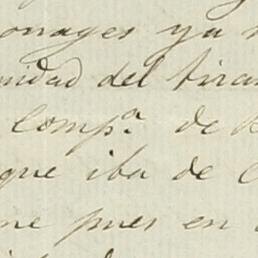 onages ya
nidad del tiran
Compª. de
que iba de C
me pues en